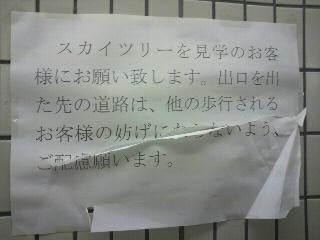 スカイツリーを見学のお客
様にお願い致します。出口を出
た先の道路は、他の歩行される
お客様の妨げにならないよう、
ご配慮願います。